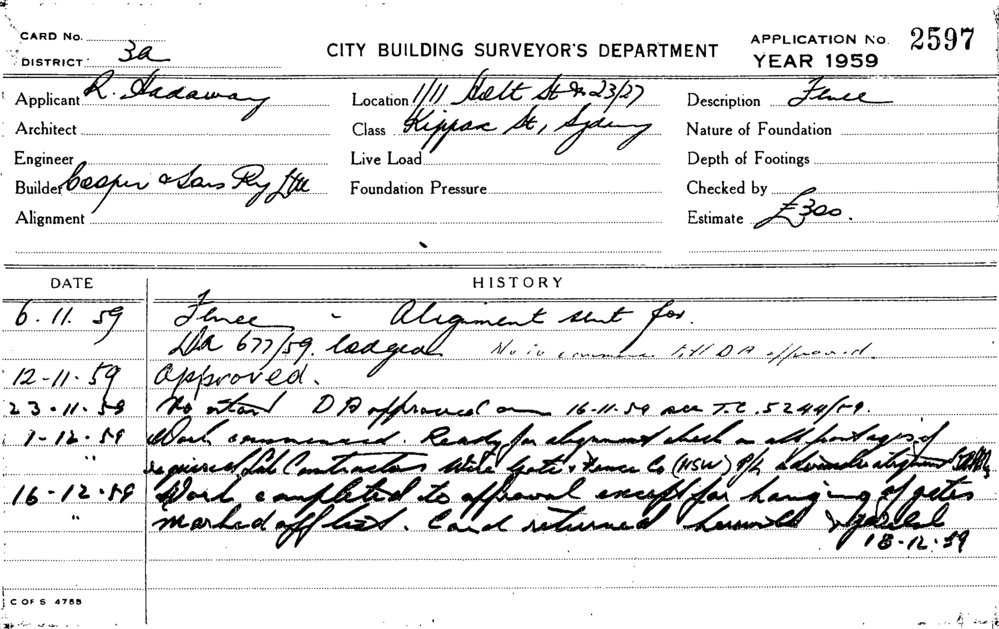 CARD No.
DISTRICT 3a
CITY BUILDING SURVEYOR'S DEPARTMENT
APPLICATION No. 2597
YEAR 1959
Applicant R. Hadaway
Location 1/11 Holt St 23/27
Description Fence
Architect
Class Kippax St, Sydney
Nature of Foundation
Engineer
Live Load
Depth of Footings
Builder Cooper & Sons Pty Ltd
Foundation Pressure
Checked by
Alignment
Estimate £300.
DATE
HISTORY
6.11.59 Fence - Alignment sent for.
DA 677/59. lodged No to commence till DA approved.
12-11-59 Approved.
23.11.59 No start DA approved on 16-11-59 see T.C. 5244/59.
1-12.59 Work commenced. Ready for alignment check on all frontages if
" required Sub Contractors Wire Gate & Fence Co (NSW) P/L
16-12-59 Work completed to approval except for hanging of gates
" Marked off list. Card returned herewith
18-12.59
C OF S 4755